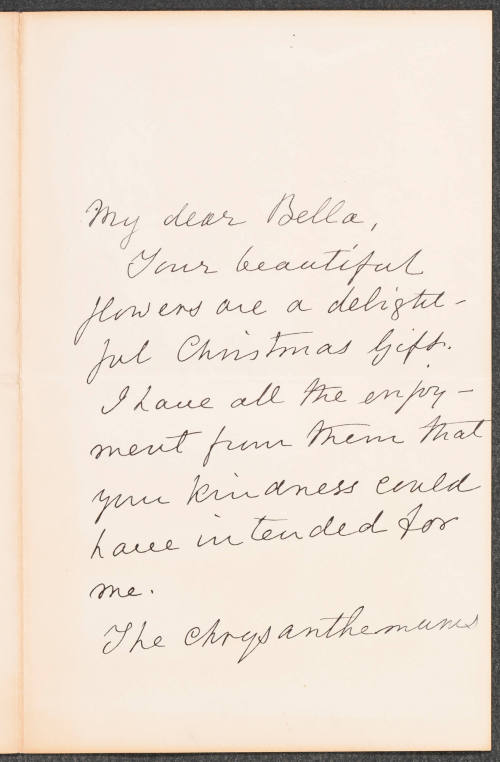 My dear Bella,
Your beautiful
flowers are a delight-
ful Christmas Gift.
I have all the enjoy-
ment from them that
your kindness could
have intended for
me.
The Chrysanthemums